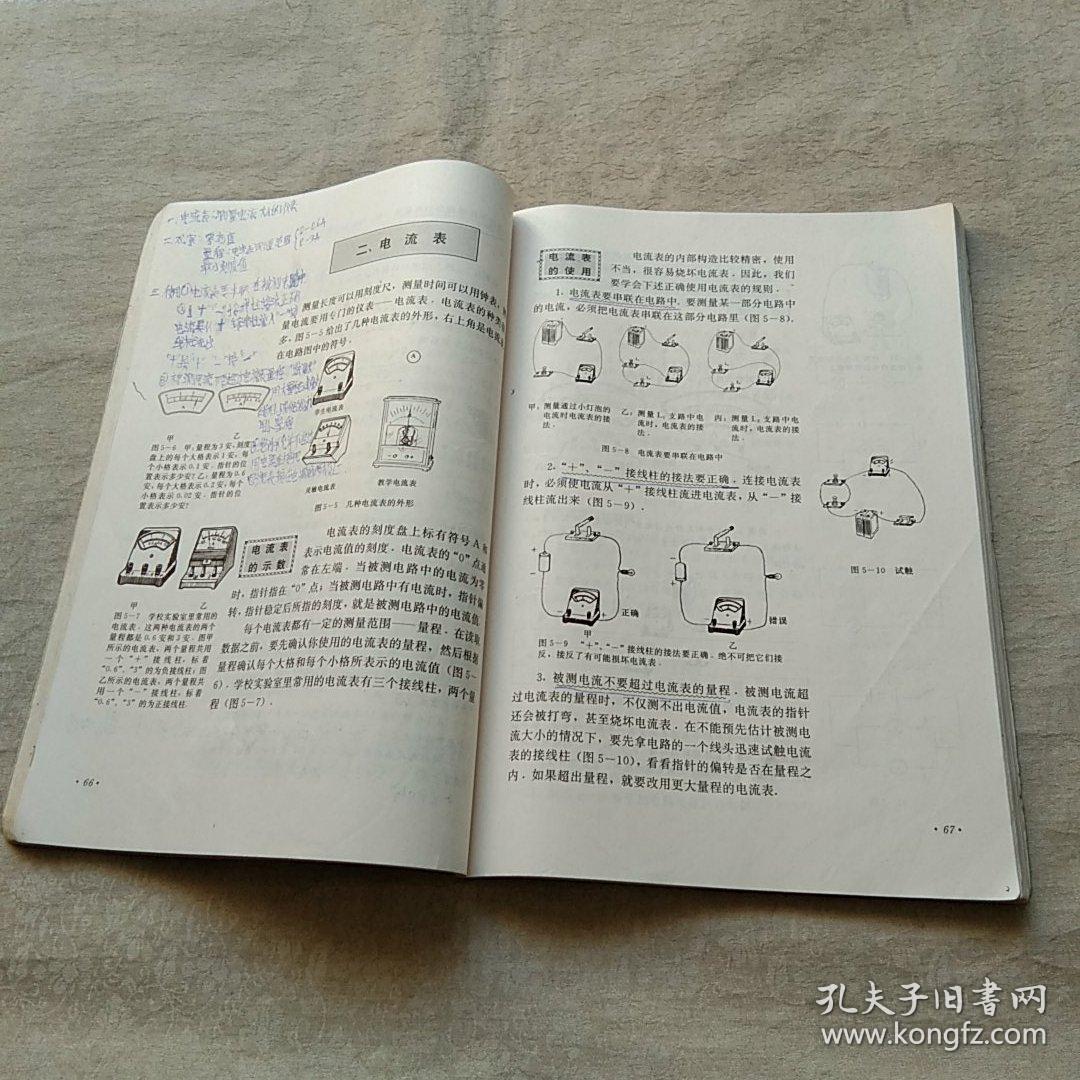 一、电流表:测量电流大小的仪表
二、电流表
测量长度可以用刻度尺，测量时间可以用钟表，测
量电流要用专门的仪表——电流表．电流表的种类
多，图5-5给出了几种电流表的外形，右上角是电流
在电路图中的符号．
A
学生电流表
灵敏电流表
教学电流表
图5-5 几种电流表的外形
甲 乙
图5-6 甲：量程为3安，刻度
盘上的每个大格表示1安；每
个小格表示0.1安．指针的位
置表示多少安？乙：量程为0.6
安，每个大格表示0.2安；每个
小格表示0.02安．指针的位
置表示多少安？
甲 乙
图5-7 学校实验室里常用的
电流表．这两种电流表的两个
量程都是0.6安和3安．图甲
所示的电流表，两个量程共用
一个“+”接线柱，标着
“0.6”、“3”的为负接线柱；图
乙所示的电流表，两个量程共
用一个“-”接线柱，标着
“0.6”、“3”的为正接线柱．
电流表
的示数
电流表的刻度盘上标有符号A和
表示电流值的刻度．电流表的“0”点通
常在左端．当被测电路中的电流为零
时，指针指在“0”点；当被测电路中有电流时，指针偏
转，指针稳定后所指的刻度，就是被测电路中的电流值．
每个电流表都有一定的测量范围——量程．在读取
数据之前，要先确认你使用的电流表的量程，然后根据
量程确认每个大格和每个小格所表示的电流值（图5-
6）．学校实验室里常用的电流表有三个接线柱，两个量
程（图5-7）．
·66·
电流表
的使用
电流表的内部构造比较精密，使用
不当，很容易烧坏电流表．因此，我们
要学会下述正确使用电流表的规则．
1．电流表要串联在电路中．要测量某一部分电路中
的电流，必须把电流表串联在这部分电路里（图5-8）．
甲：测量通过小灯泡的
电流时电流表的接
法．
乙：测量L₁支路中电
流时，电流表的接
法．
丙：测量L₂支路中电
流时，电流表的接
法．
图5-8 电流表要串联在电路中
2．“+”、“-”接线柱的接法要正确．连接电流表
时，必须使电流从“+”接线柱流进电流表，从“-”接
线柱流出来（图5-9）．
正确
错误
甲 乙
图5-9 “+”、“-”接线柱的接法要正确．绝不可把它们接
反，接反了有可能损坏电流表．
图5-10 试触
3．被测电流不要超过电流表的量程．被测电流超
过电流表的量程时，不仅测不出电流值，电流表的指针
还会被打弯，甚至烧坏电流表．在不能预先估计被测电
流大小的情况下，要先拿电路的一个线头迅速试触电流
表的接线柱（图5-10），看看指针的偏转是否在量程之
内．如果超出量程，就要改用更大量程的电流表．
·67·
孔夫子旧书网
www.kongfz.com